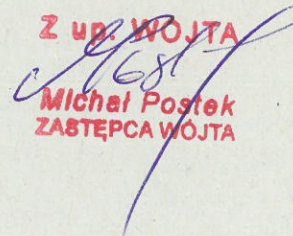 Z up. WÓJTA
Michał Postek
ZASTĘPCA WÓJTA